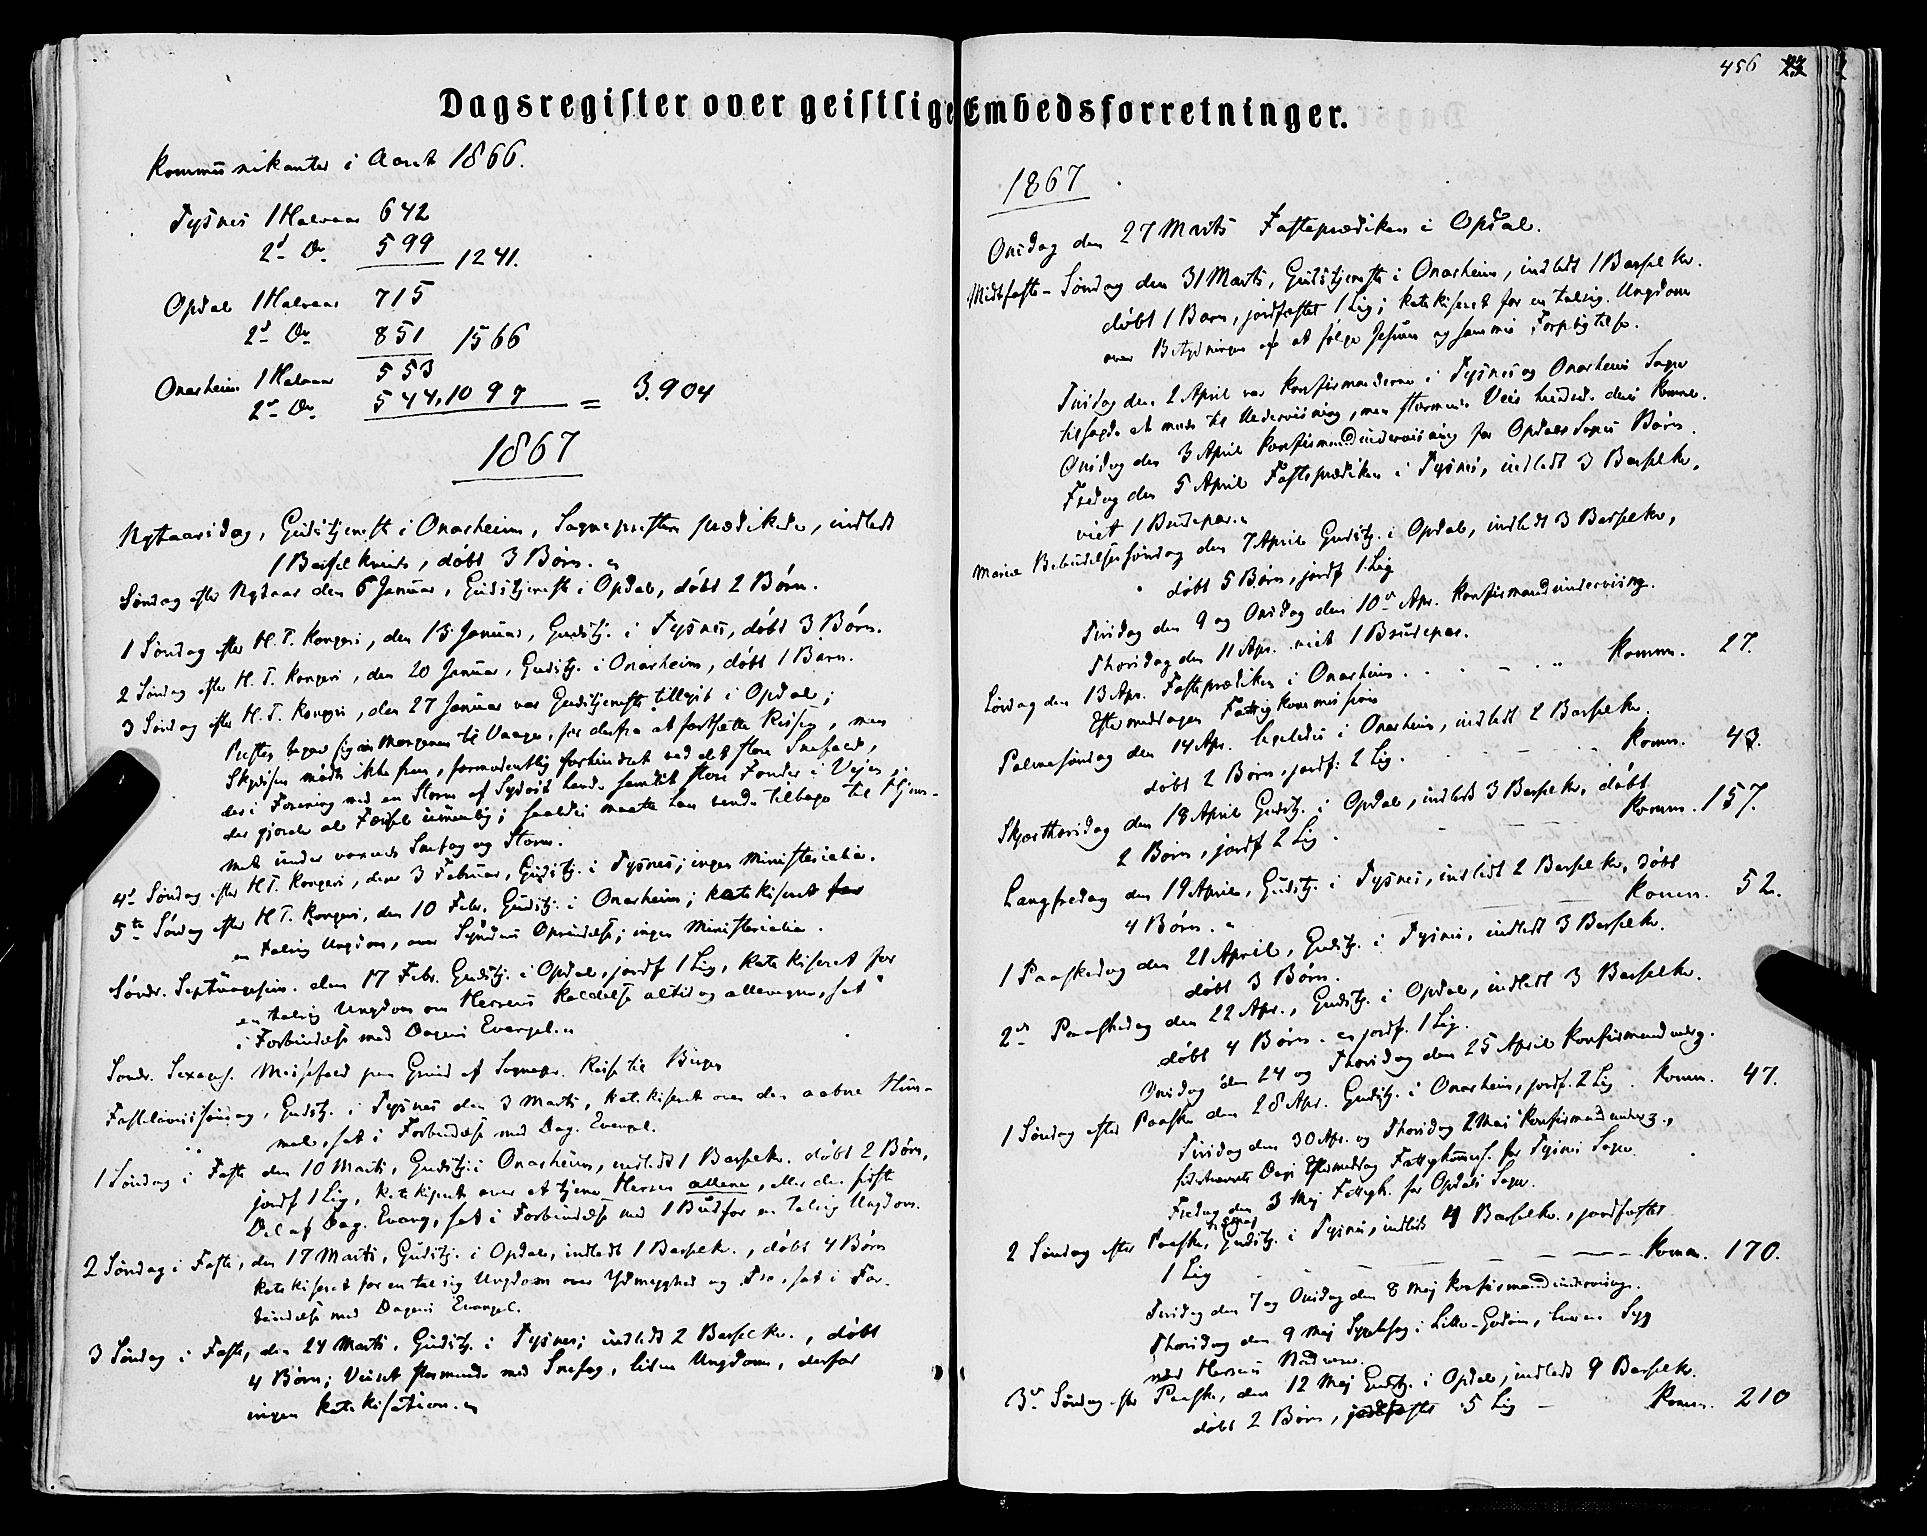 456
Dagsregister over geistlige Embedsforretninger.
Kommunikanter i Aaret 1866.
Tysnes 1 Halvaar 642
2d Do 599 1241.
Opdal 1 Halvaar 715
2d Do 851 1566
Onarheim 1 Halvaar 553
2d Do 544, 1097 = 3.904
1867
Nytaarsdag, Gudstjeneste i Onarheim, Sognepresten prædikede, indledt
1 Barselkvinde, døbt 3 Børn.
Søndag efter Nytaar den 6 Januar, Gudstjeneste i Opdal, døbt 2 Børn.
1 Søndag efter H. T. Kongers, den 13 Januar, Gudstj. i Tysnes, døbt 3 Børn.
2 Søndag efter H. T. Kongers, den 20 Januar, Gudstj. i Onarheim, døbt 1 Barn.
3 Søndag efter H. T. Kongers, den 27 Januar var Gudstjeneste tillyst i Opdal;
Presten begav sig om Morgenen til Vaage, for derfra at fortsætte Reisen, men
Skydsen mødte ikke frem, formodentlig forhindret ved det store Snefald,
der i Forening med en Storm af Sydost havde samlet store Fonder i Veien,
der gjorde al Færsel umulig; saaledes maatte han vende tilbage til Hjem-
met under voxende Snefog og Storm.
4d Søndag efter H.T. Kongers, den 3 Februar, Gudstj. i Tysnes; ingen Ministerialia.
5te Søndag efter H T. Kongers, den 10 Febr. Gudstj. i Onarheim; katekiseret for
en talrig Ungdom, over Syndens Oprindelse; ingen Ministerialia.
Søndr. Septuagesim. den 17 Febr. Gudstj. i Opdal, jordf 1 Lig, katekiseret for
en talrig Ungdom om Herrens Kaldelse altid og allevegne, sat
i Forbindelse med Dagens Evangel.
Søndr. Sexages. Messefald paa Grund af Sognepr. Reise til Bergen
Fastelavnssøndag, Gudstj. i Tysnes den 3 Marts, katekiseret over den aabne Him-
mel, sat i Forbindelse med Dag. Evangel.
1 Søndag i Faste den 10 Marts, Gudstj. i Onarheim, indledt 1 Barselkv. døbt 2 Børn,
jordf 1 Lig, katekiseret over at tjene Herren allene, eller den sidste
Del af Dag. Evang, sat i Forbindelse med 1 Bud for en talrig Ungdom.
2 Søndag i Faste, den 17 Marts, Gudstj. i Opdal, indledt 1 Barselkv., døbt 4 Børn
katekiseret for en talrig Ungdom over Ydmyghed og Tro, sat i For-
bindelse med Dagens Evangel.
3 Søndag i Faste, den 24 Marts, Gudstj. i Tysnes; indledt 2 Barselkv., døbt
4 Børn; Veiret stormende med Snefog, liden Ungdom, derfor
ingen Katekisation.
1867
Onsdag den 27 Marts Fasteprædiken i Opdal.
Midtfaste-Søndag den 31 Marts, Gudstjeneste i Onarheim, indledt 1 Barselkv.
døbt 1 Barn, jordfæstet 1 Lig; katekiseret for en talrig Ungdom
over Betydningen af at følge Jesum og sammes Forpligtelse.
Tirsdag den 2 April var Konfirmanderne i Tysnes og Onarheims Sogne
tilsagde at møde til Undervisning, men stormende Veir hindrede deres Komme.
Onsdag den 3 April Konfirmandundervisning for Opdals Sogns Børn.
Fredag den 5 April Fasteprædiken i Tysnes, indledt 3 Barselkv,
viet 1 Brudepar.
Mariæ Bebudelsessøndag den 7 April Gudstj. i Opdal, indledt 3 Barselkv,
døbt 5 Børn, jordf 1 Lig
Tirsdag den 9 og Onsdag den 10de Apr. Konfirmandundervisning.
Thorsdag den 11 Apr. viet 1 Brudepar.
Lørdag den 13 Apr. Fasteprædiken i Onarheim . . . Komm. 27.
Eftermiddagen Fattigkommission
Palmesøndag den 14 Apr. ligeledes i Onarheim, indledt 2 Barselkv.
døbt 2 Børn, jordf: 2 Lig. Komm. 43.
Skjærthorsdag den 18 April Gudstj. i Opdal, indledt 3 Barselkv, døbt
2 Børn, jordf 2 Lig. Komm. 157.
Langfredag den 19 April, Gudstj. i Tysnes, indledt 2 Barselkv, døbt
4 Børn. Komm. 52.
1 Paaskedag den 21 April, Gudstj. i Tysnes, indledt 3 Barselkv.
døbt 3 Børn.
2den Paaskedag den 22 Apr., Gudstj. i Opdal, indledt 3 Barselkv.
døbt 4 Børn. jordf. 1 Lig.
Onsdag den 24 og Thorsdag den 25 April Konfirmandundvg.
1 Søndag efter Paaske den 28 Apr. Gudstj. i Onarheim, jordf. 2 Lig. Komm. 47.
Tirsdag den 30 Apr. og Thorsdag 2 Mai Konfirmandundvg.,
sidstnævnte Dags Eftermiddag Fattigkommiss. for Tysnes Sogn.
Fredag den 3 Mai Fattigk. for Opdals Sogn.
2 Søndag efter Paaske, Gudstj. i Tysnes, indledt 4 Barselkv., jordfæstet
1 Lig Komm. 170.
Tirsdag den 7 og Onsdag den 8 Mai Konfirmandundervisning.
Thorsdag den 9 Mai Sygebesøg i Lille-Godøen, Syg
med Herrens Nadvere.
3de Søndag efter Paaske, den 12 Mai Gudstj. i Opdal, indledt 9 Barselkv.
døbt 2 Børn, jordfæstet 5 Lig Komm. 210